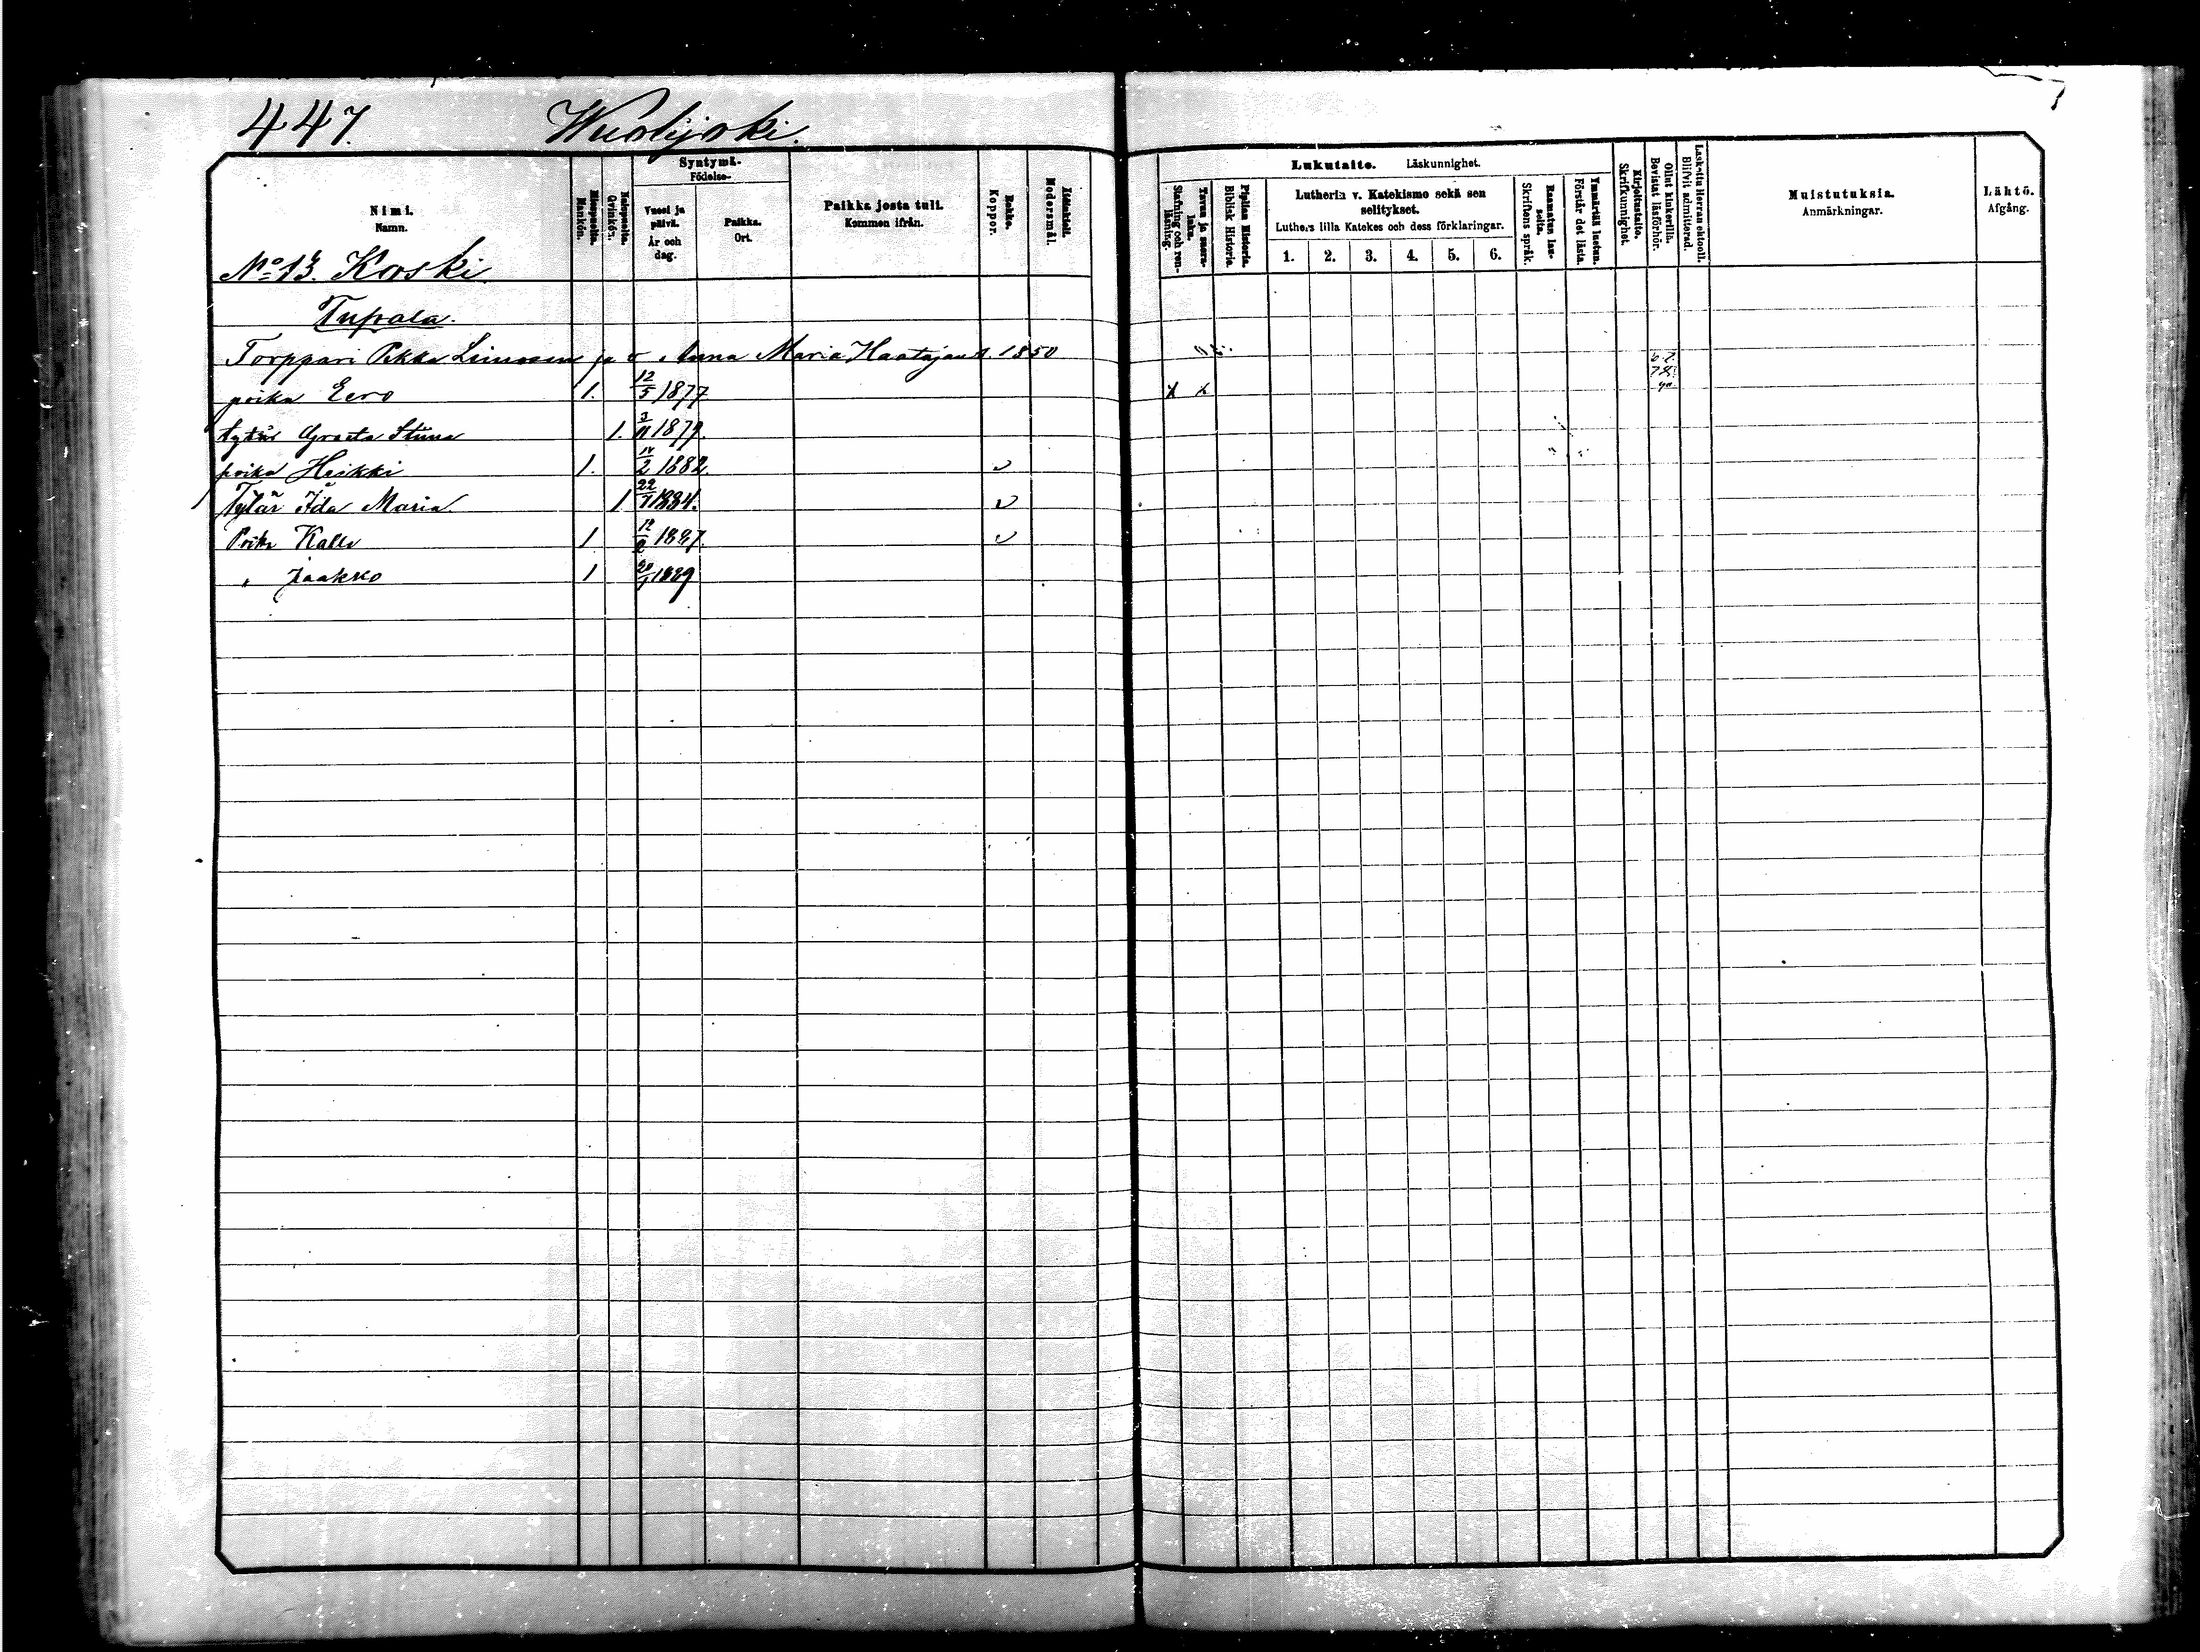 447. Wuolijoki.
Nimi.
Namn.
Miespuolia.
Mankön.
Vaimopuolia.
Qvinkön.
Syntymä-
Födelse-
Vuosi ja päivä.
År och dag.
Paikka.
Ort.
Paikka josta tuli.
Kommen ifrån.
Rokko.
Koppor.
Äidinkieli.
Modersmål.
Lukutaito. Läskunnighet.
Tavuu ja suora-luku.
Stafning och ren-läsning.
Piplian Historia.
Biblisk Historia.
Lutherin v. Katekismo sekä sen selitykset.
Luthers lilla Katekes och dess förklaringar.
1. 2. 3. 4. 5. 6.
Raamatun lau-seita.
Skriftens språk.
Ymmärtää luetun.
Förstår det lästa.
Kirjoitustaito.
Skrifkunnighet.
Ollut kinkerillä.
Bevistat läsförhör.
Laskettu Herran ehtooll.
Blifvit admitterad.
Muistutuksia.
Anmärkningar.
Lähtö.
Afgång.
No 13. Koski
Tupala.
Torppari Pekka Limosen ja v. Anna Maria Haatajan s. 1850
poika Eero 1. 12/5 1877 x x
tytär Graeta Stiina 1. 3/11 1879.
poika Heikki 1. 14/2 1882 v
Tytär Ida Maria 1 22/7 1884. v
Poika Kalle 1 12/2 1887. v
" Jaakko 1 20/1 1889